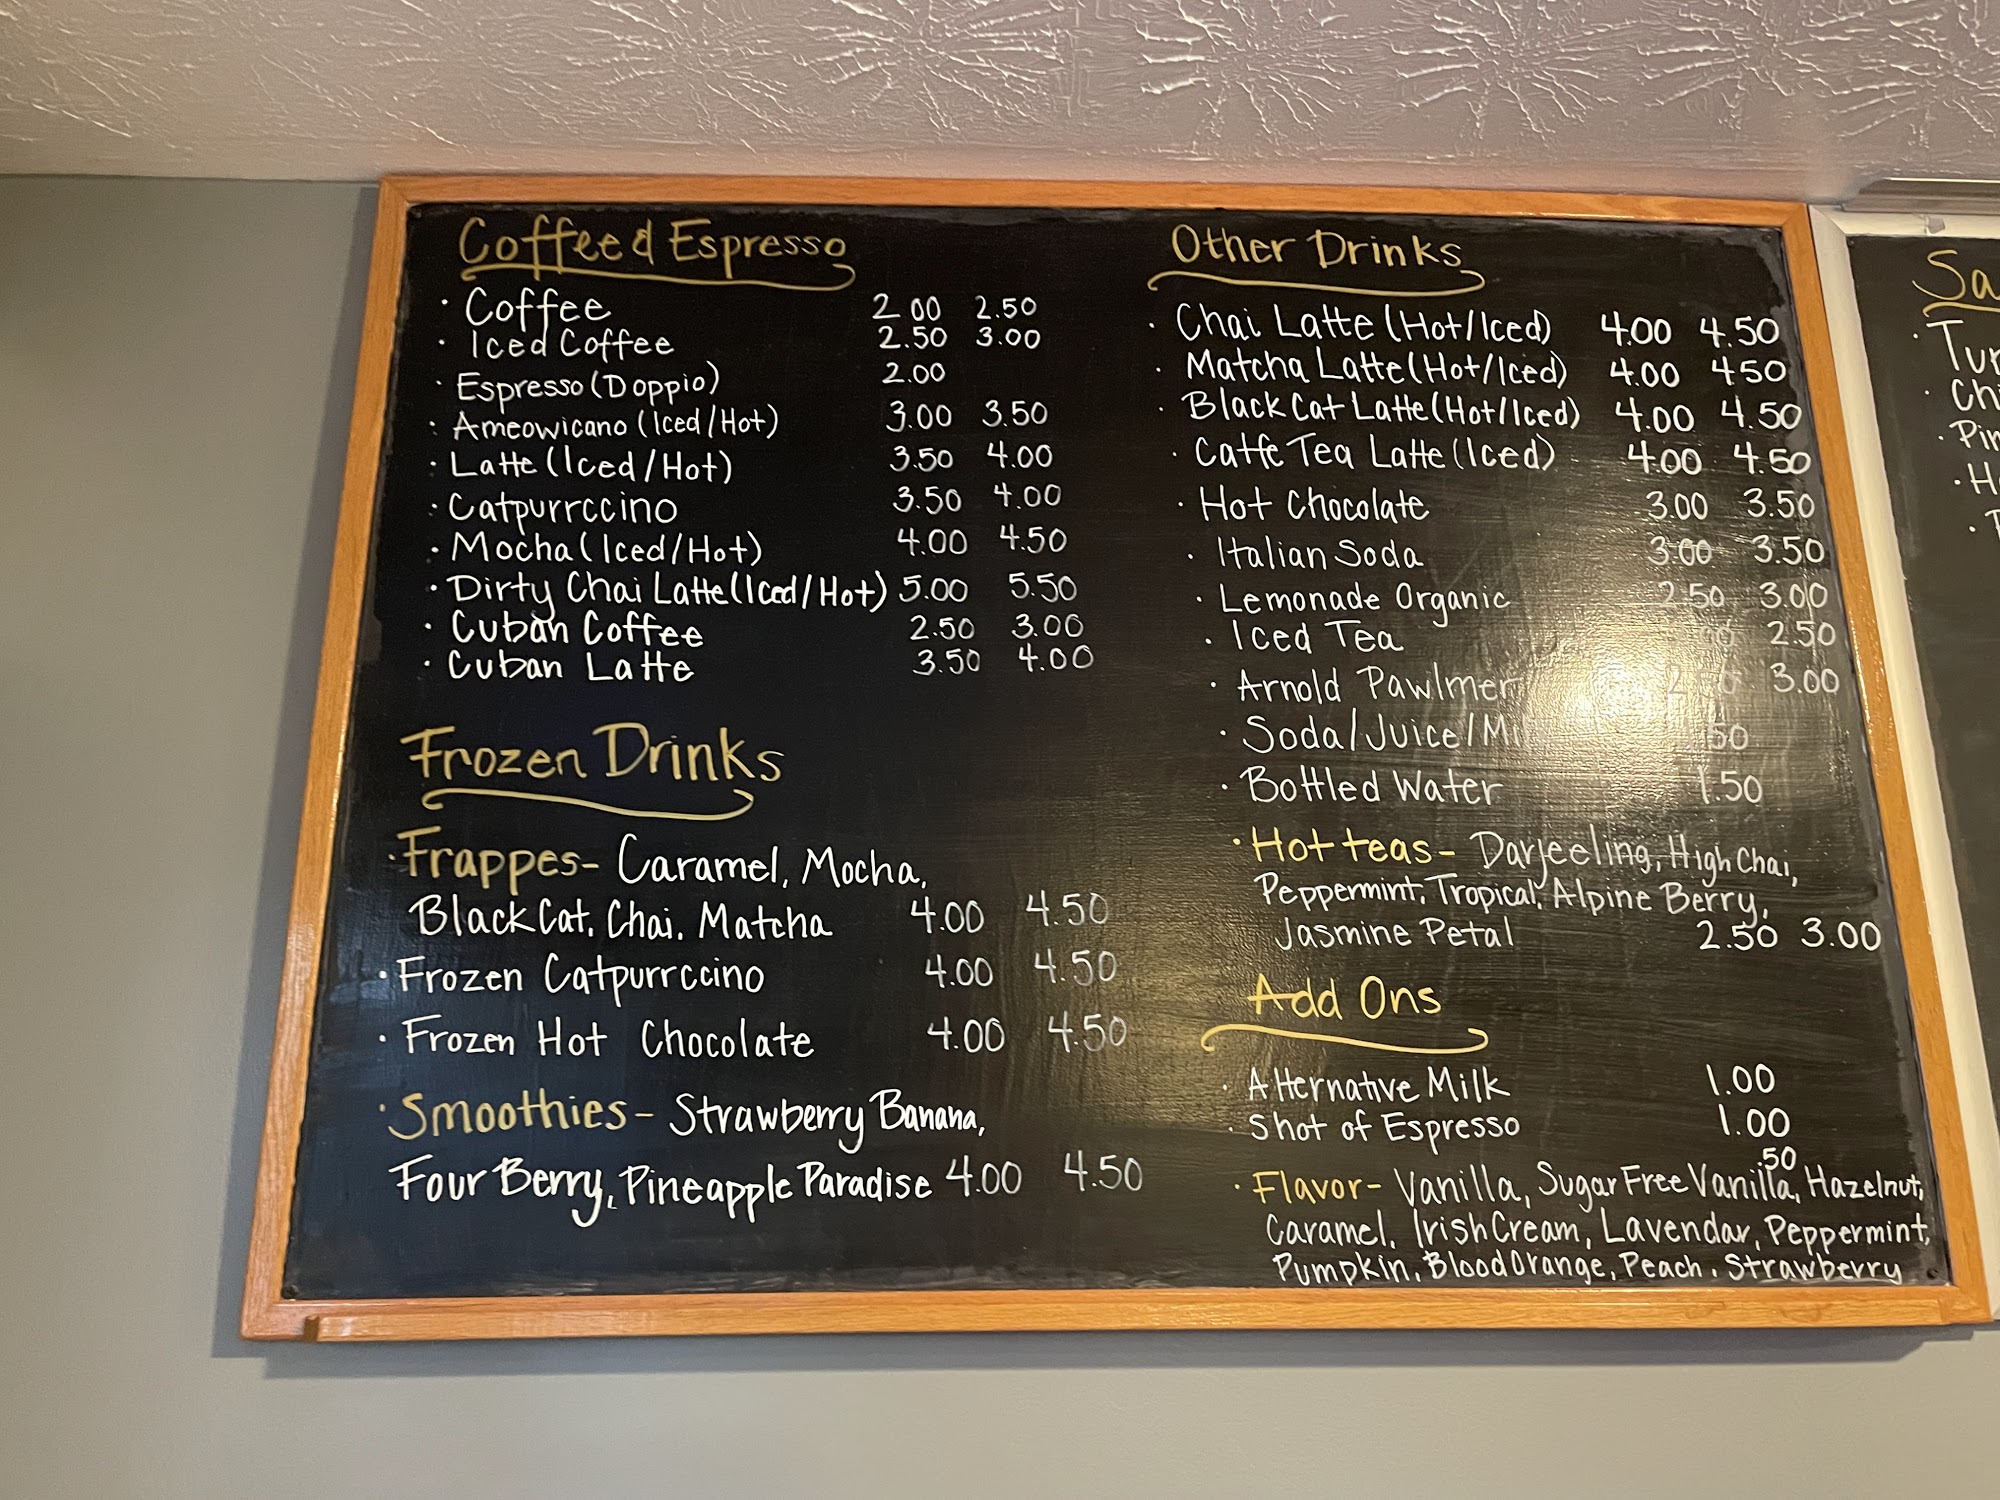 Coffee & Espresso
· Coffee 2.00 2.50
· Iced Coffee 2.50 3.00
· Espresso (Doppio) 2.00
· Ameowicano (Iced/Hot) 3.00 3.50
· Latte (Iced/Hot) 3.50 4.00
· Catpurrccino 3.50 4.00
· Mocha (Iced/Hot) 4.00 4.50
· Dirty Chai Latte (Iced/Hot) 5.00 5.50
· Cuban Coffee 2.50 3.00
· Cuban Latte 3.50 4.00
Frozen Drinks
· Frappes- Caramel, Mocha,
Black Cat, Chai, Matcha 4.00 4.50
· Frozen Catpurrccino 4.00 4.50
· Frozen Hot Chocolate 4.00 4.50
· Smoothies- Strawberry Banana,
Four Berry, Pineapple Paradise 4.00 4.50
Other Drinks
· Chai Latte (Hot/Iced) 4.00 4.50
· Matcha Latte (Hot/Iced) 4.00 4.50
· Black Cat Latte (Hot/Iced) 4.00 4.50
· Catfe Tea Latte (Iced) 4.00 4.50
· Hot Chocolate 3.00 3.50
· Italian Soda 3.00 3.50
· Lemonade Organic 2.50 3.00
· Iced Tea 2.50
· Arnold Pawlmer 3.00
· Soda/Juice/
· Bottled Water 1.50
· Hot teas- Darjeeling, High Chai,
Peppermint, Tropical, Alpine Berry,
Jasmine Petal 2.50 3.00
Add Ons
· Alternative Milk 1.00
· Shot of Espresso 1.00
.50
· Flavor- Vanilla, Sugar Free Vanilla, Hazelnut,
Caramel, Irish Cream, Lavendar, Peppermint,
Pumpkin, Blood Orange, Peach, Strawberry